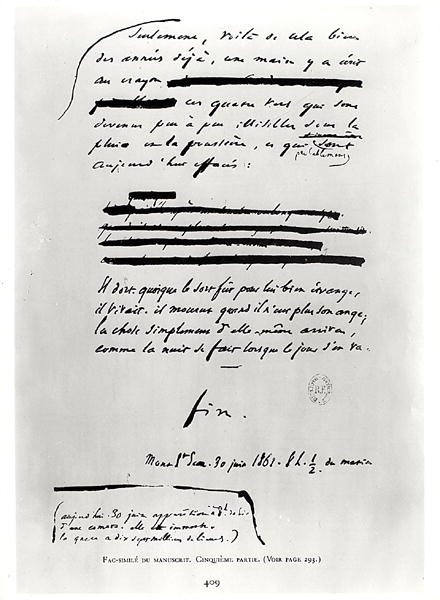 Seulement, voilà de cela bien
des années déjà, une main y a écrit
au crayon
ces quatre vers qui sont
devenus peu à peu illisibles sous la
pluie et la poussière, et qui sont
probablement
aujourd'hui effacés :
Il dort. quoique le sort fût pour lui bien étrange,
il vivait. il mourut quand il n'eut plus son ange;
la chose simplement d'elle-même arriva,
comme la nuit se fait lorsque le jour s'en va.
fin.
Mont St Jean. 30 juin 1861. 8 h. 1/2 du matin
R.F.
(aujourd'hui 30 juin apparition
d'une comète. elle est immense.
la queue a dix sept millions de lieues.)
FAC-SIMILÉ DU MANUSCRIT. CINQUIÈME PARTIE. (VOIR PAGE 293.)
409